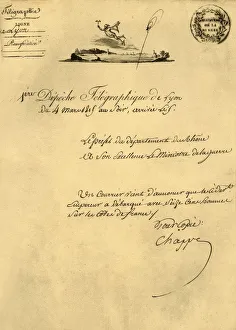 Télégraphie
LIGNE
de Lyon
1ere Dépêche Télégraphique de Lyon
Du 4 Mars 1815 au Soir, arrivée le 5.
Le préfet du département du Rhône
A Son Excellence Le Ministre de la guerre
Un Courrier vient d'annoncer que
a débarqué avec Seize Cens hommes
Sur les Côtes de france
Pour Copie
Chappe